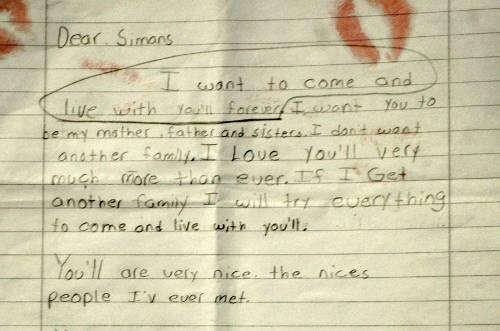 Dear. Simons
I want to come and
live with you'll forever. I want you to
be my mother, father and sisters. I don't want
another family. I Love you'll very
much more than ever. If I Get
another family I will try everything
to come and live with you'll.
You'll are very nice. the nices
people I'v ever met.